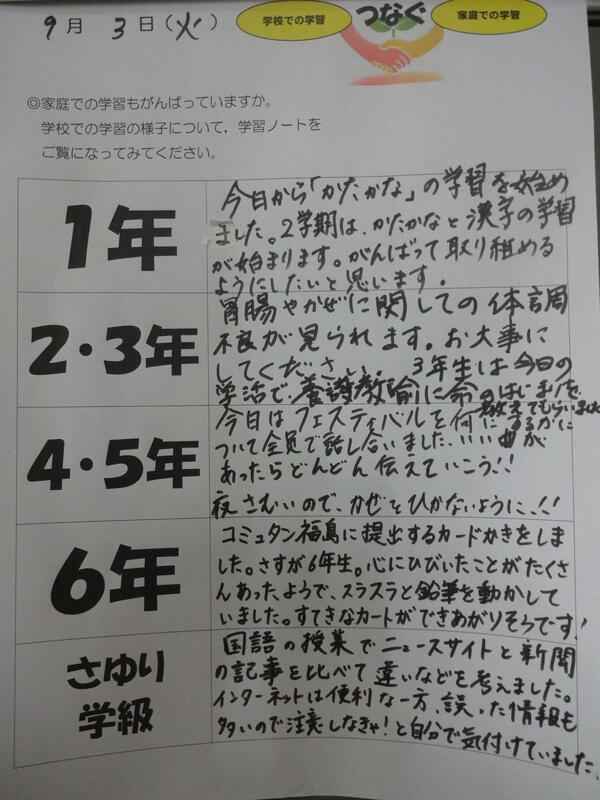 9月 3日(火)
学校での学習
つなぐ
家庭での学習
◎家庭での学習もがんばっていますか。
学校での学習の様子について,学習ノートを
ご覧になってみてください。
1年
今日から「かたかな」の学習を始め
ました。2学期は、かたかなと漢字の学習
が始まります。がんばって取り組める
ようにしたいと思います。
2・3年
胃腸やかぜに関しての体調
不良が見られます。お大事に
してください。 3年生は今日の
学活で、養護教諭に命のはじまりを
教えてもらいました
4・5年
今日はフェスティバルを何にするかに
ついて全員で話し合いました。いい曲が
あったらどんどん伝えていこう!!
夜さむいので、かぜをひかないように、!!
6年
コミュタン福島に提出するカードかきをしま
した。さすが6年生。心にひびいたことがたくさ
んあった、ようで、スラスラと鉛筆を動かして
いました。すてきなカードができあがりそうです!
さゆり
学級
国語の授業でニュースサイトと新聞
の記事を比べて違いなどを考えました。
インターネットは便利な一方、誤った情報も
多いので注意しなきゃ!と自分で気付けていました。